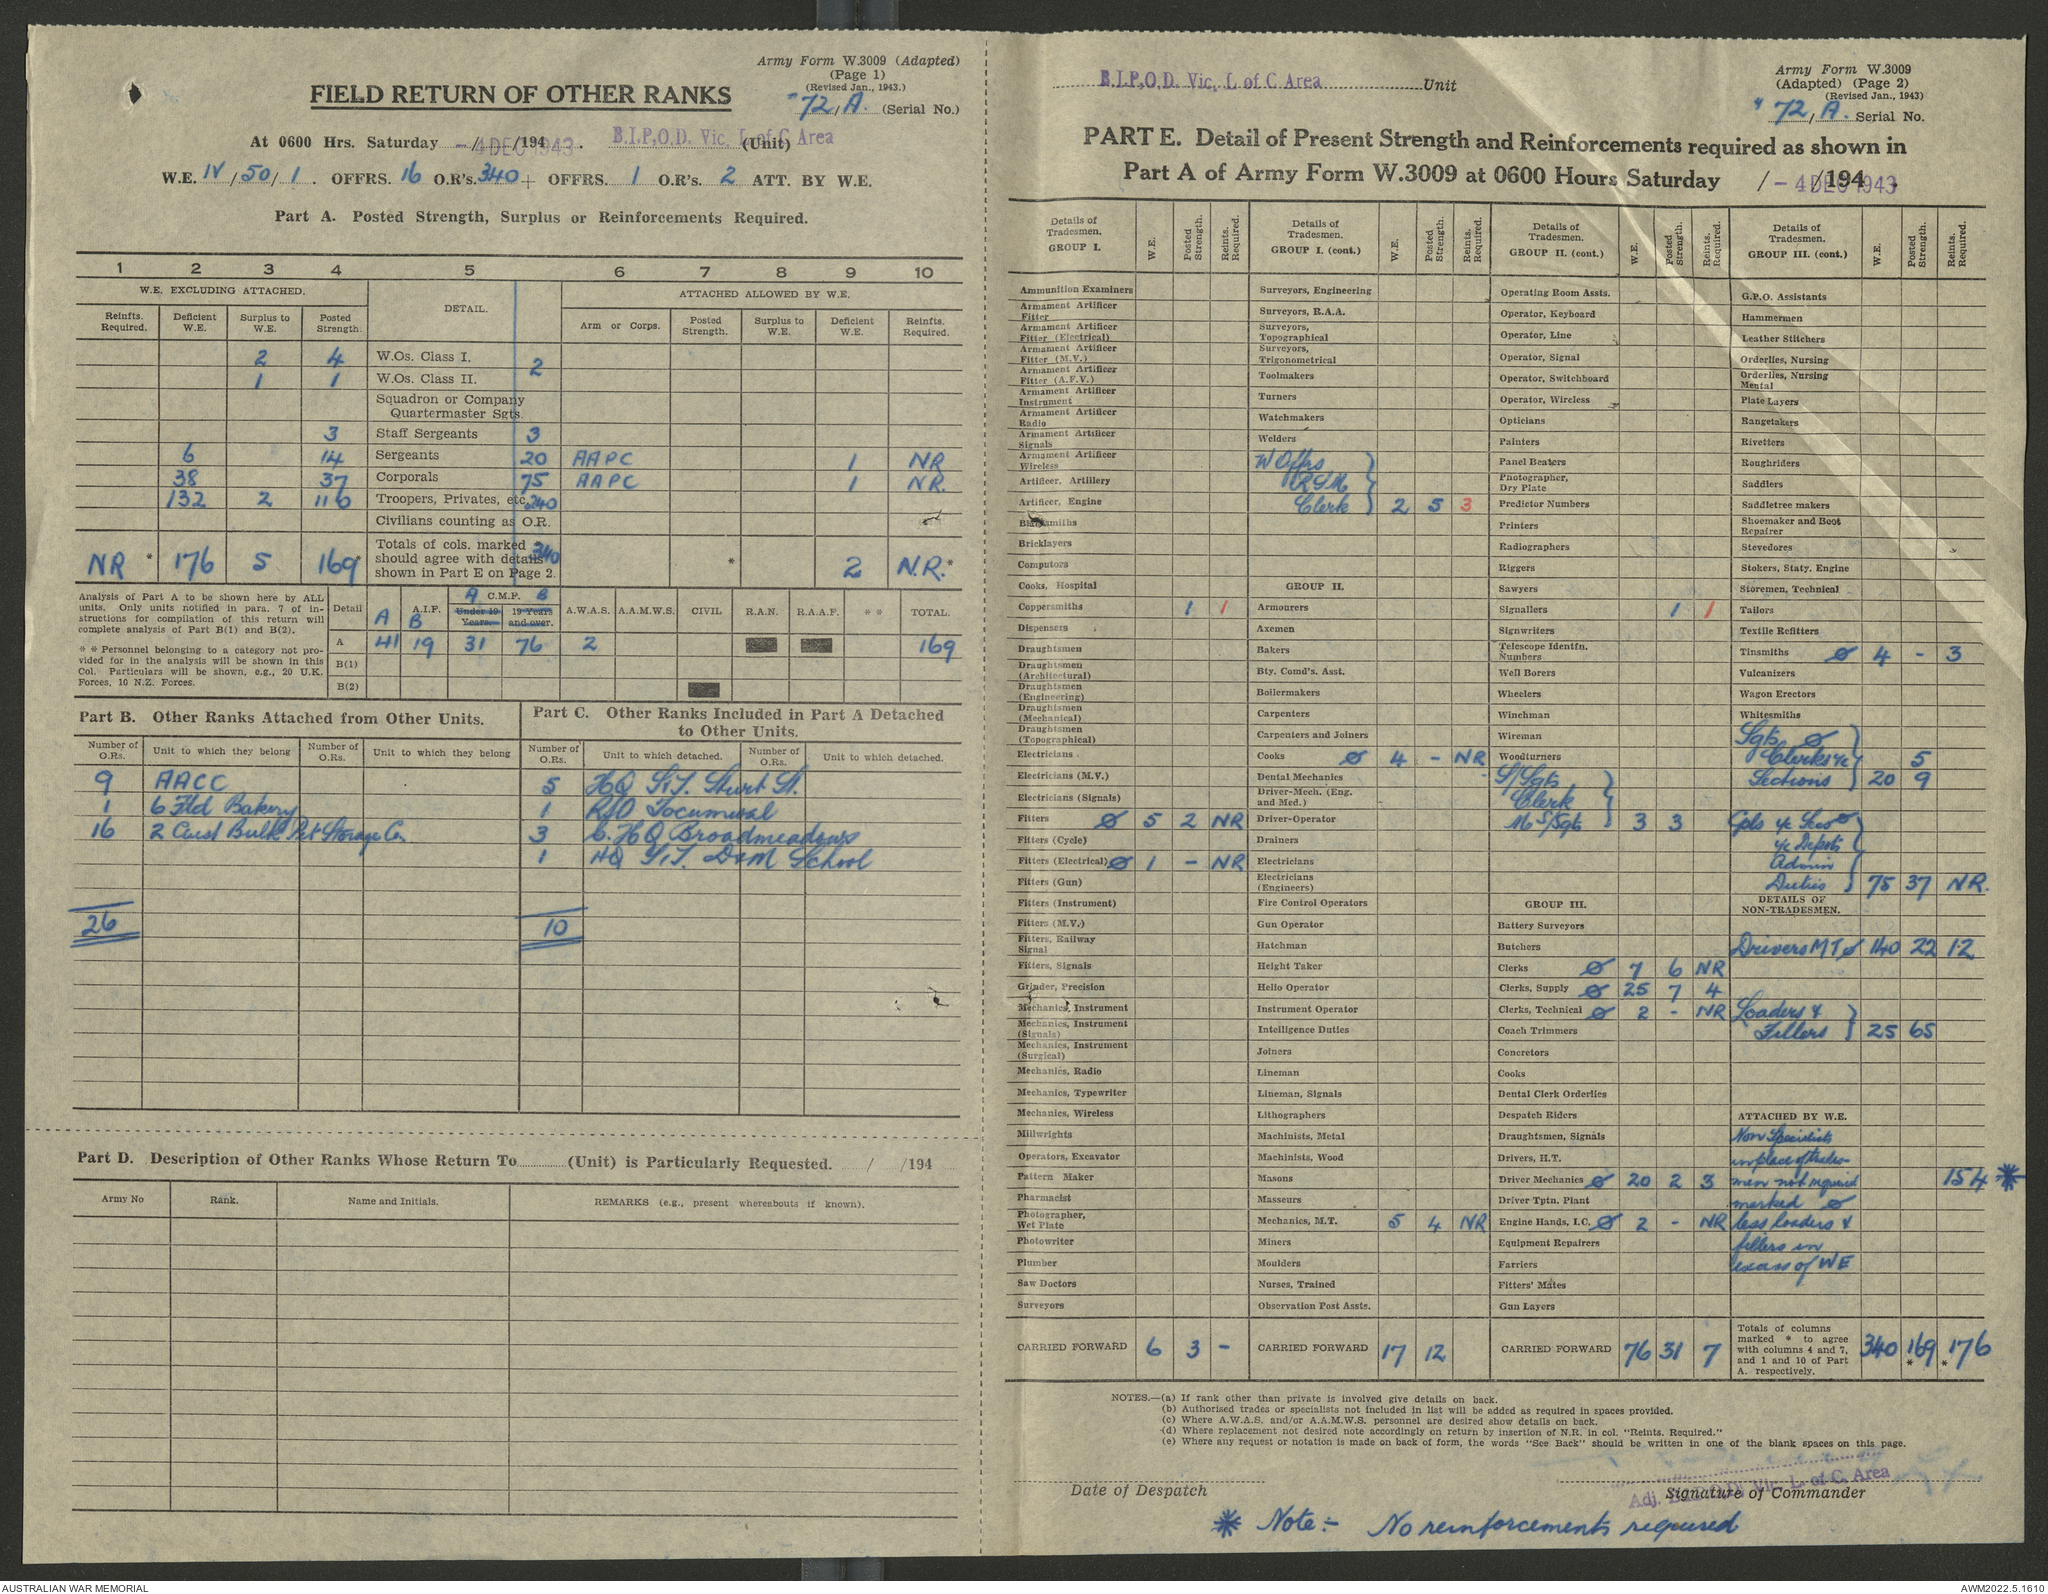 Army Form W.3009 (Adapted)
(Page 1)
(Revised Jan., 1943.)
"72, A. (Serial No.)
FIELD RETURN OF OTHER RANKS
At 0600 Hrs. Saturday -4 DEC 1943 /194 . B.I.P.O.D. Vic. L of C Area (Unit)
W.E. IV / 50 / 1 . OFFRS. 16 O.R's. 340 + OFFRS. 1 O.R's. 2 ATT. BY W.E.
Part A. Posted Strength, Surplus or Reinforcements Required.
1 2 3 4 5 6 7 8 9 10
W.E. EXCLUDING ATTACHED. DETAIL. ATTACHED ALLOWED BY W.E.
Reinfts. Required. Deficient W.E. Surplus to W.E. Posted Strength. Arm or Corps. Posted Strength. Surplus to W.E. Deficient W.E. Reinfts. Required.
2 4 W.Os. Class I. 2
1 1 W.Os. Class II.
Squadron or Company Quartermaster Sgts.
3 Staff Sergeants 3
6 14 Sergeants 20 AAPC 1 NR
38 37 Corporals 75 AAPC 1 NR.
132 2 110 Troopers, Privates, etc. 240
Civilians counting as O.R.
NR * 176 5 169 * Totals of cols. marked * should agree with details shown in Part E on Page 2. 340 * 2 N.R. *
Analysis of Part A to be shown here by ALL units. Only units notified in para. 7 of instructions for compilation of this return will complete analysis of Part B(1) and B(2).
* * Personnel belonging to a category not provided for in the analysis will be shown in this Col. Particulars will be shown, e.g., 20 U.K. Forces, 10 N.Z. Forces.
Detail A A.I.F. B A C.M.F. B Under 19 Years. 19 Years and over. A.W.A.S. A.A.M.W.S. CIVIL R.A.N. R.A.A.F. * * TOTAL.
A 41 19 31 76 2 169
B(1)
B(2)
Part B. Other Ranks Attached from Other Units.
Number of O.Rs. Unit to which they belong Number of O.Rs. Unit to which they belong
9 AACC
1 6 Fld Bakery
16 2 Aust Bulk Pet Storage Co.
26
Part C. Other Ranks Included in Part A Detached to Other Units.
Number of O.Rs. Unit to which detached. Number of O.Rs. Unit to which detached.
5 HQ S.T. Sturt St.
1 R/O Tocumwal
3 C. HQ Broadmeadows
1 HQ S.T. D&M School
10
Part D. Description of Other Ranks Whose Return To (Unit) is Particularly Requested. / /194
Army No Rank. Name and Initials. REMARKS (e.g., present whereabouts if known).
B.I.P.O.D. Vic. L of C Area Unit
Army Form W.3009
(Adapted) (Page 2)
(Revised Jan., 1943)
" 72, A. Serial No.
PART E. Detail of Present Strength and Reinforcements required as shown in
Part A of Army Form W.3009 at 0600 Hours Saturday / -4 DEC 1943 /194 .
Details of Tradesmen. GROUP I. W.E. Posted Strength. Reints. Required.
Ammunition Examiners
Armament Artificer Fitter
Armament Artificer Fitter (Electrical)
Armament Artificer Fitter (M.V.)
Armament Artificer Fitter (A.F.V.)
Armament Artificer Instrument
Armament Artificer Radio
Armament Artificer Signals
Armament Artificer Wireless
Artificer, Artillery
Artificer, Engine
Blacksmiths
Bricklayers
Computors
Cooks, Hospital
Coppersmiths 1 1
Dispensers
Draughtsmen
Draughtsmen (Architectural)
Draughtsmen (Engineering)
Draughtsmen (Mechanical)
Draughtsmen (Topographical)
Electricians
Electricians (M.V.)
Electricians (Signals)
Fitters Ø 5 2 NR
Fitters (Cycle)
Fitters (Electrical) Ø 1 - NR
Fitters (Gun)
Fitters (Instrument)
Fitters (M.V.)
Fitters, Railway Signal
Fitters, Signals
Grinder, Precision
Mechanics, Instrument
Mechanics, Instrument (Signals)
Mechanics, Instrument (Surgical)
Mechanics, Radio
Mechanics, Typewriter
Mechanics, Wireless
Millwrights
Operators, Excavator
Pattern Maker
Pharmacist
Photographer, Wet Plate
Photowriter
Plumber
Saw Doctors
Surveyors
CARRIED FORWARD 6 3 -
Details of Tradesmen. GROUP I. (cont.) W.E. Posted Strength. Reints. Required.
Surveyors, Engineering
Surveyors, R.A.A.
Surveyors, Topographical
Surveyors, Trigonometrical
Toolmakers
Turners
Watchmakers
Welders
W Offrs
RSM
Clerk 2 5 3
GROUP II.
Armourers
Axemen
Bakers
Bty. Comd's. Asst.
Boilermakers
Carpenters
Carpenters and Joiners
Cooks Ø 4 - NR
Dental Mechanics
Driver-Mech. (Eng. and Med.)
Driver-Operator
Drainers
Electricians
Electricians (Engineers)
Fire Control Operators
Gun Operator
Hatchman
Height Taker
Helio Operator
Instrument Operator
Intelligence Duties
Joiners
Lineman
Lineman, Signals
Lithographers
Machinists, Metal
Machinists, Wood
Masons
Masseurs
Mechanics, M.T. 5 4 NR
Miners
Moulders
Nurses, Trained
Observation Post Assts.
CARRIED FORWARD 17 12
Details of Tradesmen. GROUP II. (cont.) W.E. Posted Strength. Reints. Required.
Operating Room Assts.
Operator, Keyboard
Operator, Line
Operator, Signal
Operator, Switchboard
Operator, Wireless
Opticians
Painters
Panel Beaters
Photographer, Dry Plate
Predictor Numbers
Printers
Radiographers
Riggers
Sawyers
Signallers 1 1
Signwriters
Telescope Identfn. Numbers
Well Borers
Wheelers
Winchman
Wireman
Woodturners
S/Sgts
Clerk
M S/Sgt 3 3
GROUP III.
Battery Surveyors
Butchers
Clerks Ø 7 6 NR
Clerks, Supply Ø 25 7 4
Clerks, Technical Ø 2 - NR
Coach Trimmers
Concretors
Cooks
Dental Clerk Orderlies
Despatch Riders
Draughtsmen, Signals
Drivers, H.T.
Driver Mechanics Ø 20 2 3
Driver Tptn. Plant
Engine Hands, I.C. Ø 2 - NR
Equipment Repairers
Farriers
Fitters' Mates
Gun Layers
CARRIED FORWARD 76 31 7
Details of Tradesmen. GROUP III. (cont.) W.E. Posted Strength. Reints. Required.
G.P.O. Assistants
Hammermen
Leather Stitchers
Orderlies, Nursing
Orderlies, Nursing Mental
Plate Layers
Rangetakers
Rivetters
Roughriders
Saddlers
Saddletree makers
Shoemaker and Boot Repairer
Stevedores
Stokers, Staty. Engine
Storemen, Technical
Tailors
Textile Refitters
Tinsmiths Ø 4 - 3
Vulcanizers
Wagon Erectors
Whitesmiths
Sgts Ø
Clerks i/c 5
Sections 20 9
Cpls i/c Secs Ø
i/c Depots
Admin
Duties 75 37 NR.
DETAILS OF NON-TRADESMEN.
Drivers MT Ø 140 22 12
Loaders &
Fillers 25 65
ATTACHED BY W.E.
Non Specialists
in place of trades-
men not required 154 *
marked Ø
less loaders &
fillers in
excess of WE
Totals of columns marked * to agree with columns 4 and 7, and 1 and 10 of Part A. respectively. 340 169 * 176 *
NOTES.—(a) If rank other than private is involved give details on back.
(b) Authorised trades or specialists not included in list will be added as required in spaces provided.
(c) Where A.W.A.S. and/or A.A.M.W.S. personnel are desired show details on back.
(d) Where replacement not desired note accordingly on return by insertion of N.R. in col. "Reints. Required."
(e) Where any request or notation is made on back of form, the words "See Back" should be written in one of the blank spaces on this page.
Date of Despatch
Adj. B.I.P.O.D. Vic. L. of C. Area
Signature of Commander
* Note:- No reinforcements required
AUSTRALIAN WAR MEMORIAL
AWM2022.5.1610